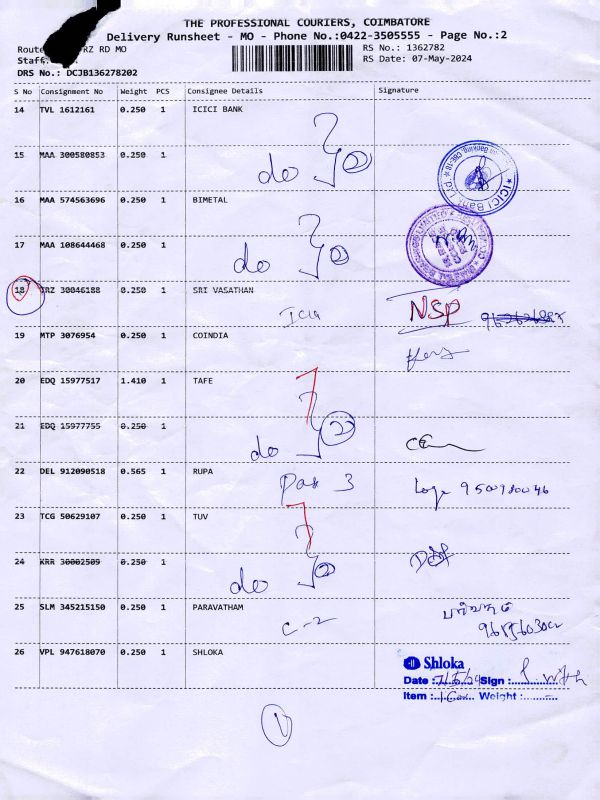 THE PROFESSIONAL COURIERS, COIMBATORE
Delivery Runsheet - MO - Phone No.:0422-3505555 - Page No.:2
Route RZ RD MO
RS No.: 1362782
Staff
RS Date: 07-May-2024
DRS No.: DCJB136278202
S No Consignment No Weight PCS Consignee Details Signature
14 TVL 1612161 0.250 1 ICICI BANK
15 MAA 300580853 0.250 1
do
ICICI Bank Ltd
16 MAA 574563696 0.250 1 BIMETAL
17 MAA 108644468 0.250 1
do
18 TRZ 30046188 0.250 1 SRI VASATHAN
NSP
19 MTP 3076954 0.250 1 COINDIA
20 EDQ 15977517 1.410 1 TAFE
21 EDQ 15977755 0.250 1
do 2
22 DEL 912090518 0.565 1 RUPA
3
23 TCG 50629107 0.250 1 TUV
24 KRR 30002509 0.250 1
do
25 SLM 345215150 0.250 1 PARAVATHAM
C-2
26 VPL 947618070 0.250 1 SHLOKA
Shloka
Date : Sign :
Item : Weight :